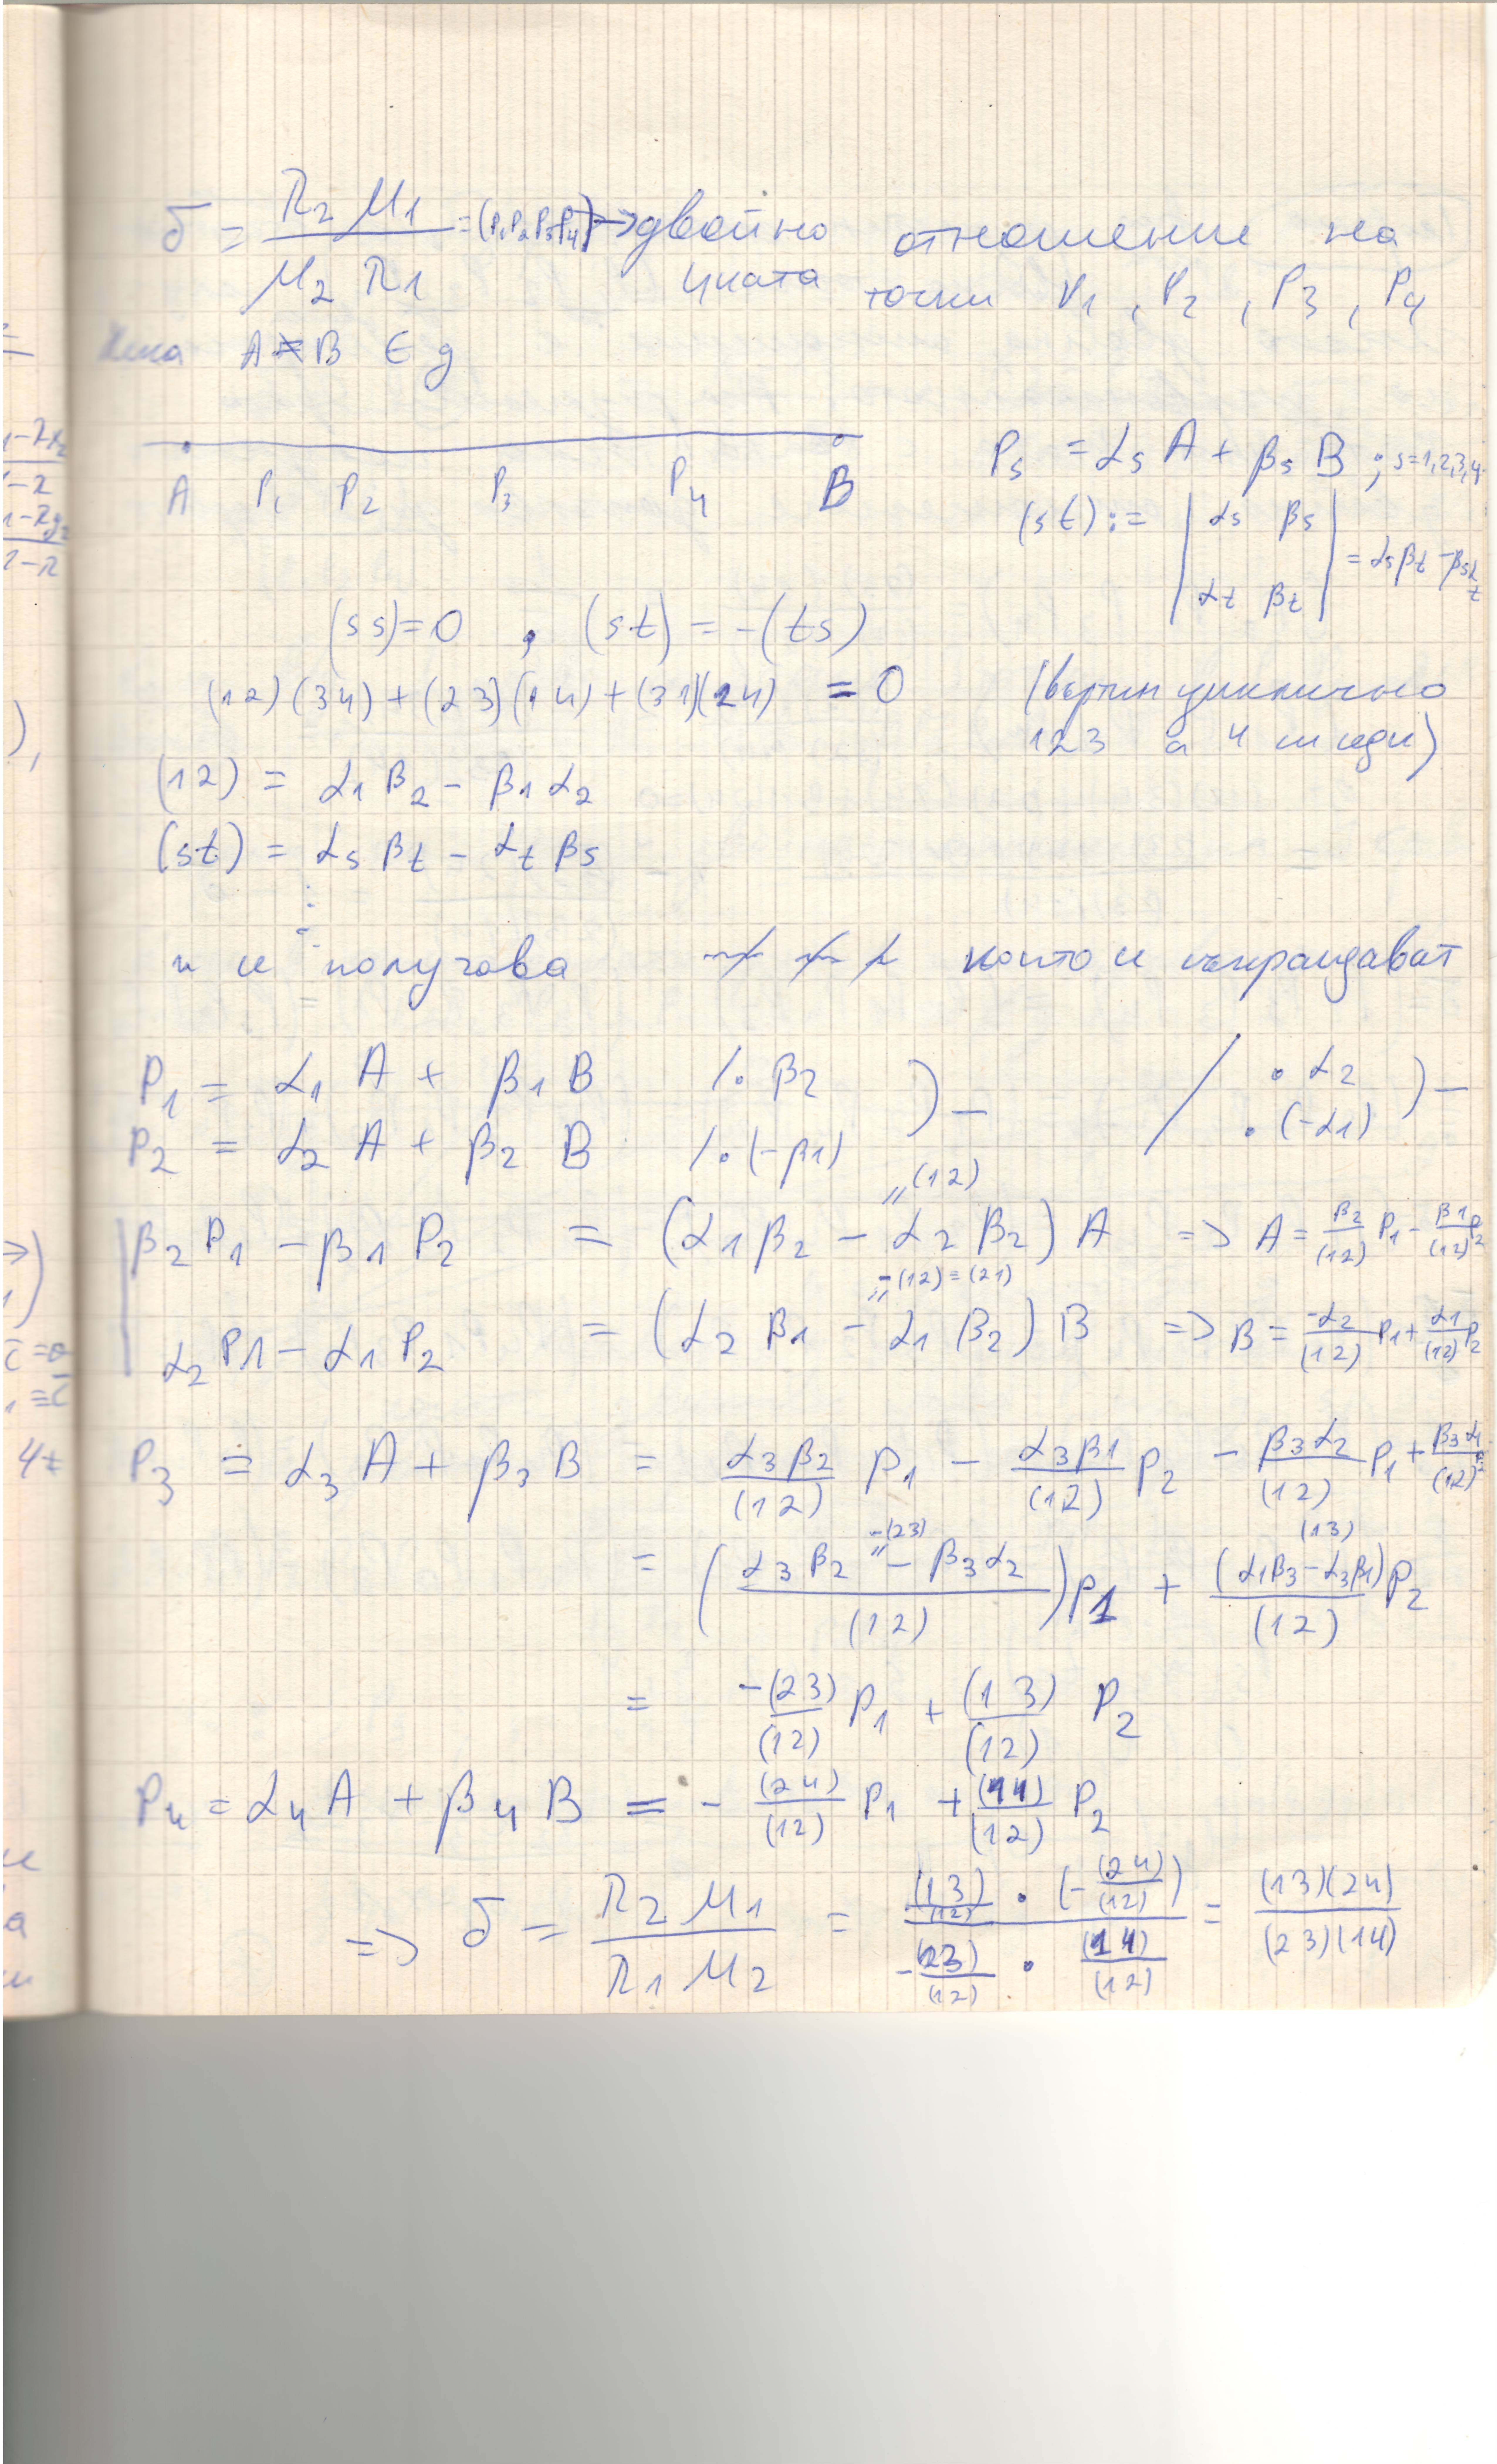 δ = λ2 μ1 / μ2 λ1 = (P1 P2 P3 P4) → двойно отношение на
4ката точки P1, P2, P3, P4
Нека A ≠ B ∈ g
A P1 P2 P3 P4 B
Ps = αs A + βs B ; s=1,2,3,4
(st) := | αs βs ; αt βt | = αs βt - βs αt
(ss)=0 , (st) = -(ts)
(12)(34) + (23)(14) + (31)(24) = 0 (въртим циклично
123 а 4 си седи)
(12) = α1 β2 - β1 α2
(st) = αs βt - αt βs
⋮
и се получава които се съкращават
P1 = α1 A + β1 B /. β2 ) - / . α2 ) -
P2 = α2 A + β2 B /. (-β1) . (-α1)
" (12)
β2 P1 - β1 P2 = (α1 β2 - α2 β2) A => A = β2/(12) P1 - β1/(12) P2
" -(12) = (21)
α2 P1 - α1 P2 = (α2 β1 - α1 β2) B => B = -α2/(12) P1 + α1/(12) P2
P3 = α3 A + β3 B = α3 β2/(12) P1 - α3 β1/(12) P2 - β3 α2/(12) P1 + β3 α1/(12) P2
-(23) " (13)
= ((α3 β2 - β3 α2)/(12)) P1 + (α1 β3 - α3 β1)/(12) P2
= -(23)/(12) P1 + (13)/(12) P2
P4 = α4 A + β4 B = - (24)/(12) P1 + (14)/(12) P2
=> δ = λ2 μ1 / λ1 μ2 = (13)/(12) . (-(24)/(12)) / -(23)/(12) . (14)/(12) = (13)(24) / (23)(14)